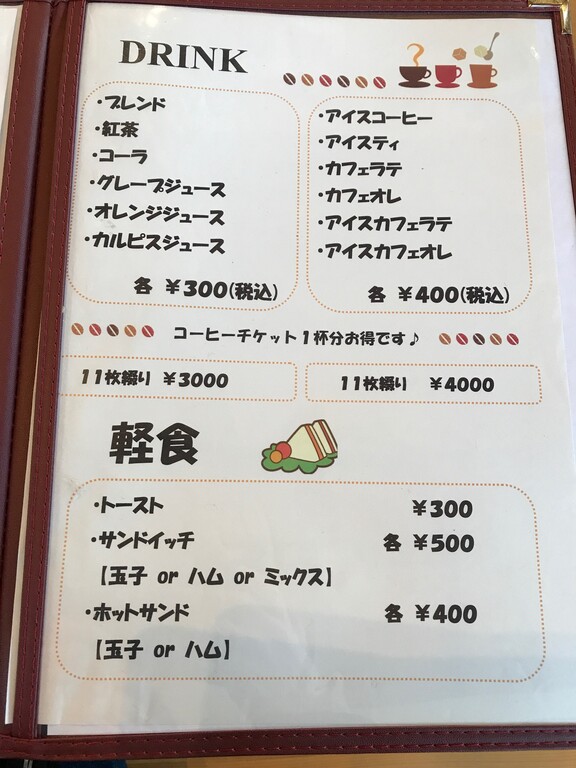 DRINK
・ブレンド
・紅茶
・コーラ
・グレープジュース
・オレンジジュース
・カルピスジュース
各 ¥300(税込)
・アイスコーヒー
・アイスティ
・カフェラテ
・カフェオレ
・アイスカフェラテ
・アイスカフェオレ
各 ¥400(税込)
コーヒーチケット1杯分お得です♪
11枚綴り ¥3000
11枚綴り ¥4000
軽食
・トースト ¥300
・サンドイッチ 各 ¥500
【玉子 or ハム or ミックス】
・ホットサンド 各 ¥400
【玉子 or ハム】